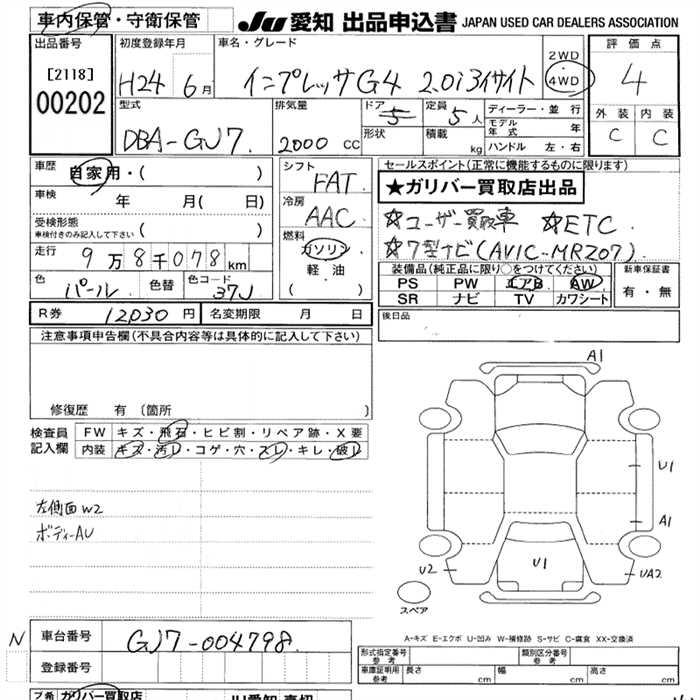 車内保管・守衛保管
JU 愛知 出品申込書 JAPAN USED CAR DEALERS ASSOCIATION
出品番号
[2118]
00202
初度登録年月
H24 6月
車名・グレード
インプレッサG4 2.0i アイサイト
2WD
4WD
評価点
4
外装 内装
C C
型式
DBA-GJ7
排気量
2000 cc
ドア 5
形状
定員 5人
積載 kg
ディーラー・並 行
モデル年式 年
ハンドル 左・右
車歴 自家用・( )
車検 年 月( 日)
受検形態
車検付きのみ記入して下さい ( )
走行 9万8千078km
色 パール 色替 色コード 37J
シフト
FAT
冷房
AAC
燃料
ガソリン
軽 油
( )
セールスポイント(正常に機能するものに限ります)
★ガリバー買取店出品
☆ユーザー買取車 ☆ETC
☆7型ナビ(AVIC-MRZ07)
装備品(純正品に限り○をつけてください)
PS PW エアB AW
SR ナビ TV カワシート
新車保証書
有・無
R券 12030円 名変期限 月 日
後日品
注意事項申告欄(不具合内容等は具体的に記入して下さい)
修復歴 有 〔箇所 〕
検査員記入欄
FW キズ・飛石・ヒビ割・リペア跡・X要
内装 キズ・汚レ・コゲ・穴・スレ・キレ・破レ
左側面W2
ボディーAU
A1
U1
A1
U1
U2
UA2
スペア
A-キズ E-エクボ U-凹み W-補修跡 S-サビ C-腐食 XX-交換済
N 車台番号 GJ7-004798
登録番号
形式指定番号 参考
類別区分番号 参考
車庫証明用 参考 長さ cm 幅 cm 高さ cm
ガリバー買取店
JU愛知